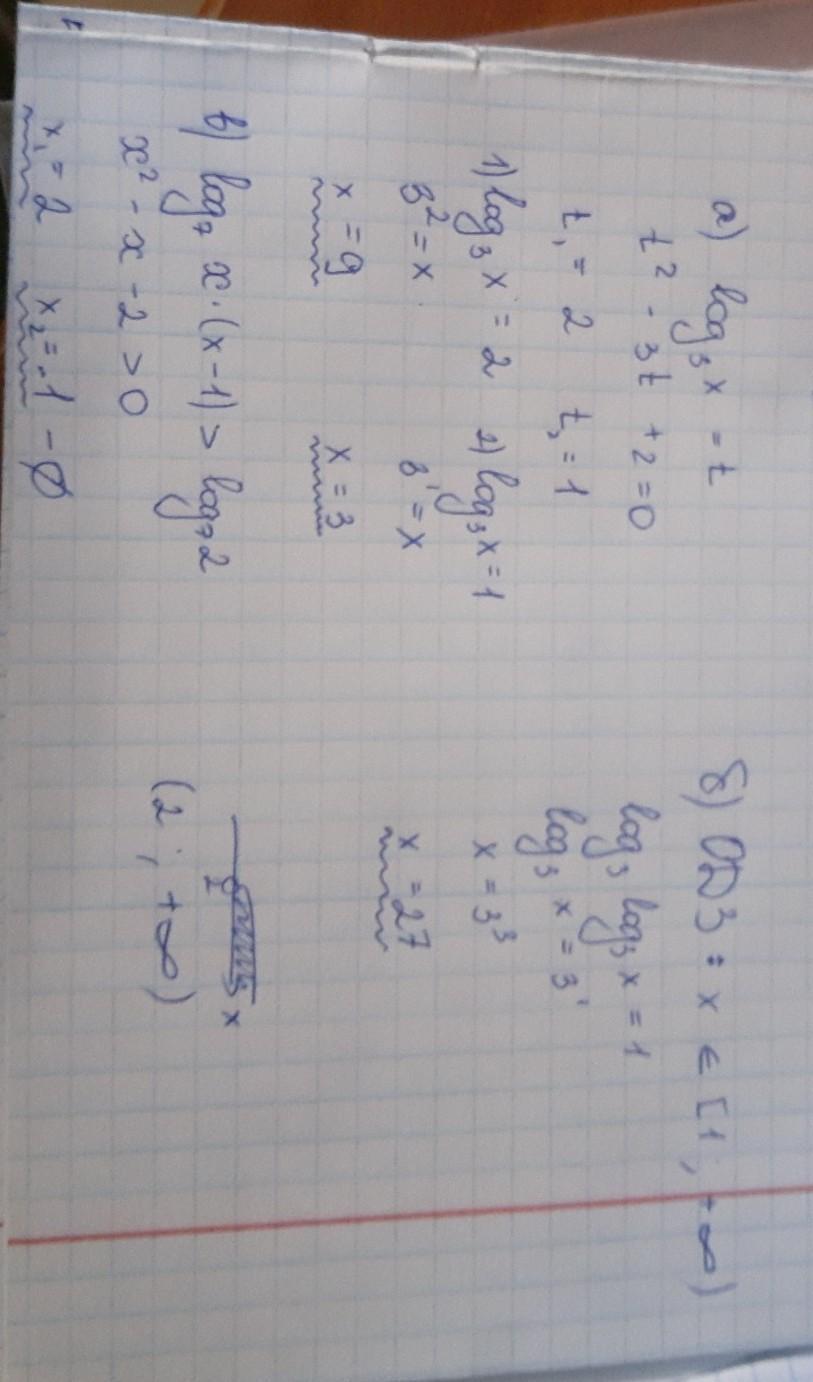 а) log₃ x = t
t² - 3t + 2 = 0
t₁ = 2 t₂ = 1
1) log₃ x = 2 2) log₃ x = 1
3² = x 3¹ = x
x = 9 x = 3
б) ОДЗ : x ∈ [1 ; +∞)
log₃ log₃ x = 1
log₃ x = 3¹
x = 3³
x = 27
в) log₇ x·(x-1) > log₇ 2
x² - x - 2 > 0
x₁ = 2 x₂ = -1 - ∅
2 x
(2 ; +∞)